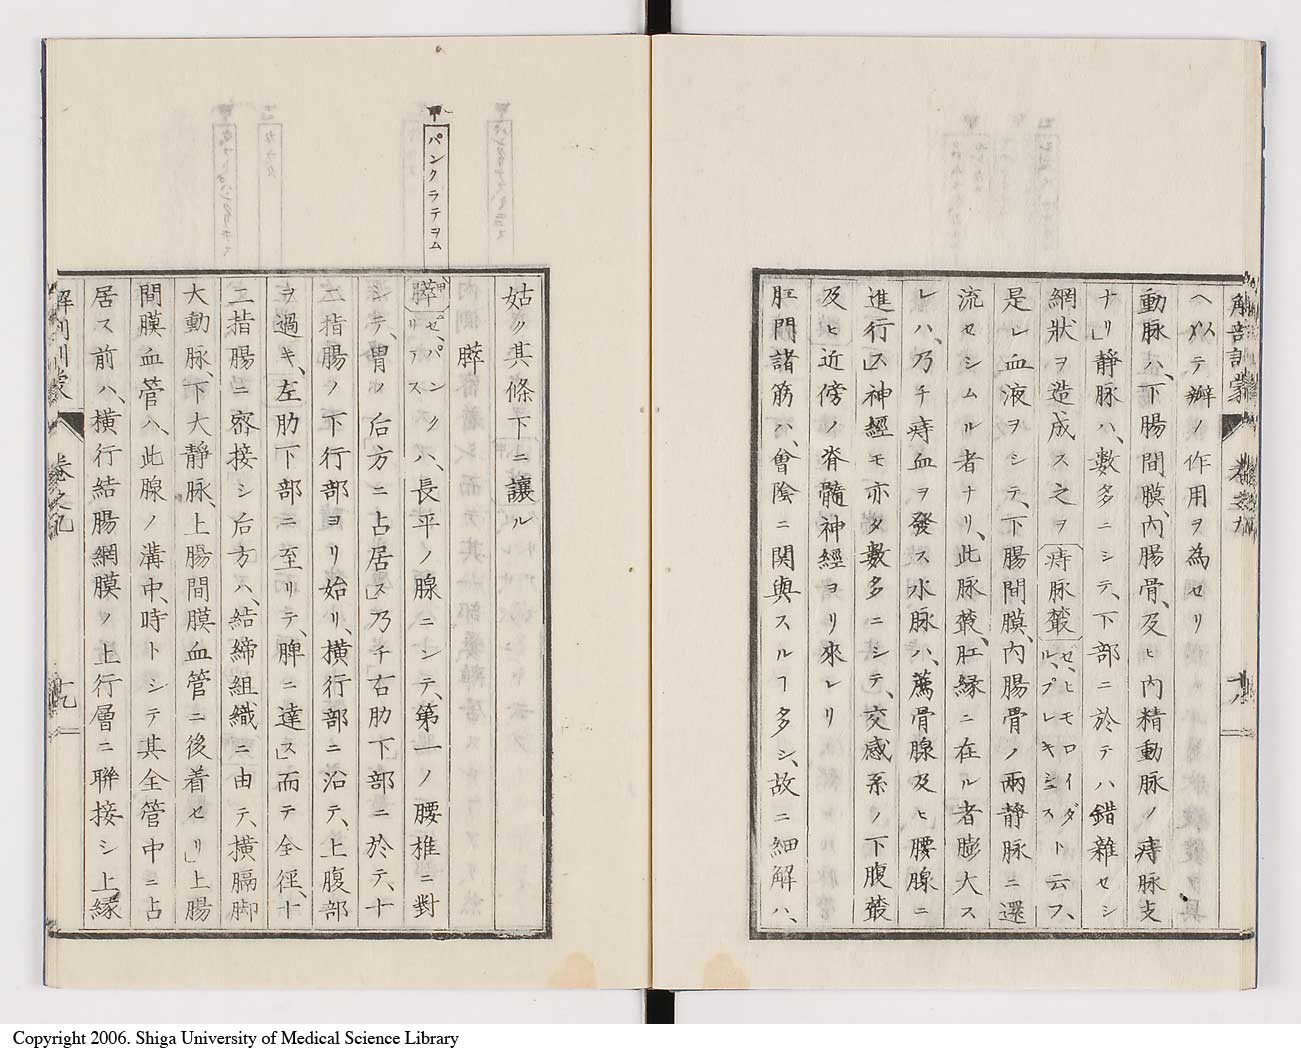 解剖訓蒙 卷之九 十八
ヘ以テ瓣ノ作用ヲ為セリ
動脉ハ、下腸間膜、内腸骨、及ヒ内精動脉ノ痔脉支
ナリ」靜脉ハ、數多ニシテ、下部ニ於テハ錯雜セシ
網狀ヲ造成ス之ヲ痔脉叢「ゼ、ヒモロイダル、プレキシュス」ト云フ、
是レ血液ヲシテ、下腸間膜、内腸骨ノ兩静脉ニ還
流セシムル者ナリ、此脉叢、肛縁ニ在ル者膨大ス
レハ、乃チ痔血ヲ發ス水脉ハ、薦骨腺及ヒ腰腺ニ
進行ス」神經モ亦タ數多ニシテ、交感系ノ下腹叢
及ヒ近傍ノ脊髓神經ヨリ來レリ
肛門諸筋ハ、會陰ニ関與スルヿ多シ、故ニ細解ハ、
姑ク其條下ニ讓ル
膵
甲 パンクラテヲム
膵「ゼ、パンクリアス」ハ、長平ノ腺ニシテ、第一ノ腰椎ニ對
シテ、胃ノ后方ニ占居ス」乃チ右肋下部ニ於テ、十
二指腸ノ下行部ヨリ始リ、横行部ニ沿テ、上腹部
ヲ過キ、左肋下部ニ至リテ、脾ニ達ス」而テ全徑、十
二指腸ニ密接シ后方ハ、結締組織ニ由テ、横膈脚
大動脉、下大静脉、上腸間膜血管ニ後着セリ」上腸
間膜血管ハ、此腺ノ溝中、時トシテ其全管中ニ占
居ス前ハ、横行結腸網膜ノ上行層ニ聯接シ上縁
解剖訓蒙 卷之九 十九
Copyright 2006. Shiga University of Medical Science Library